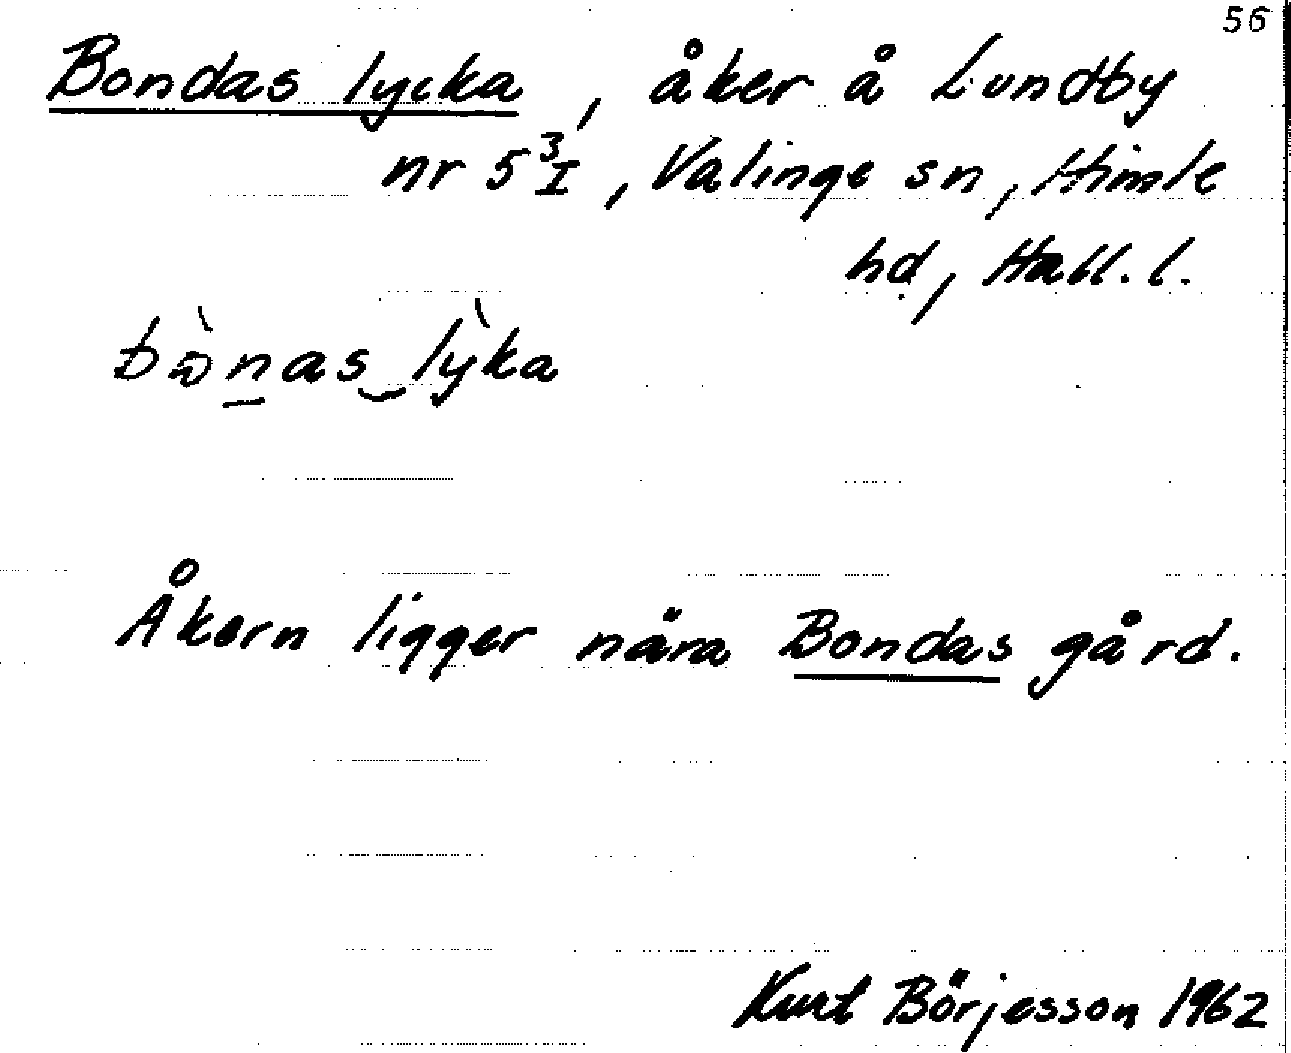 56
Bondas lycka, åker å Lundby
nr 5 3/I, Valinge sn, Himle
hd, Hall. l.
bònas‿lỳka
Åkern ligger nära Bondas gård.
Kurt Börjesson 1962